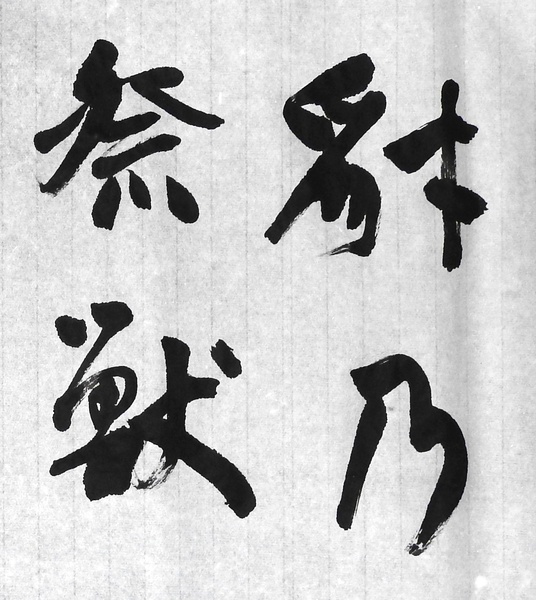 豺乃
祭獸